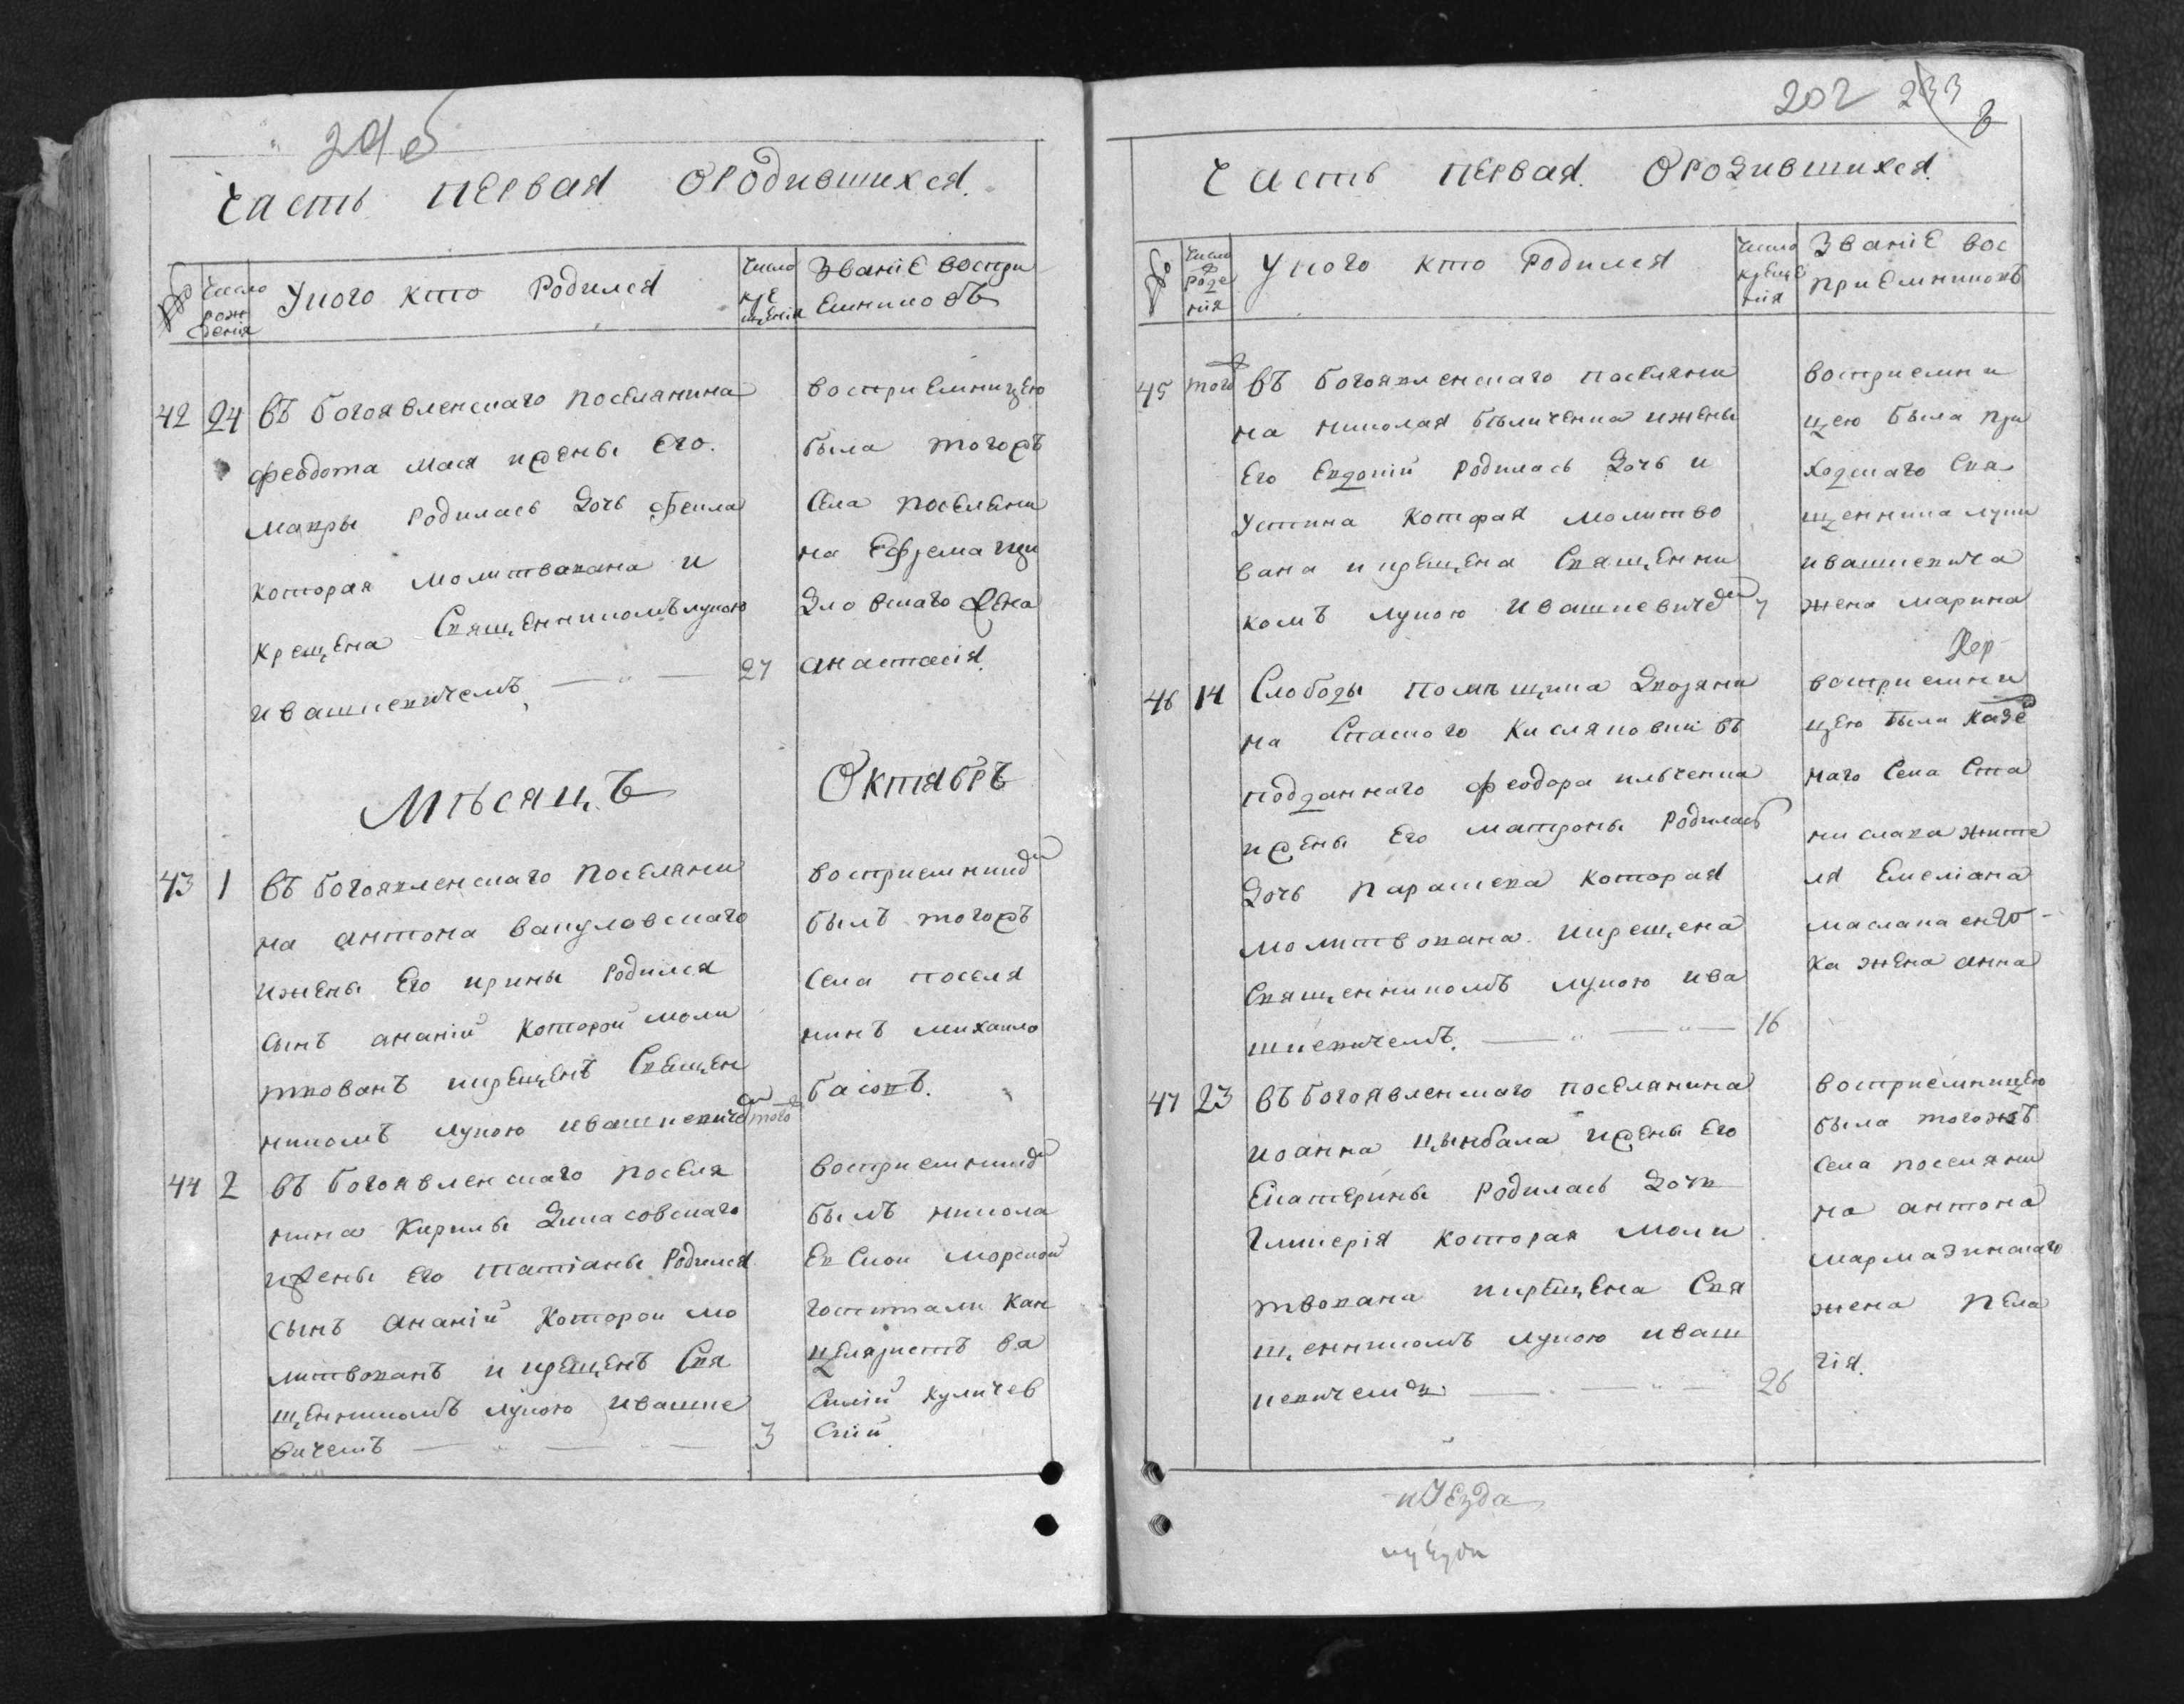 Часть первая Ородившихся.
№
Число рождения
Укого кто Родился
Число крещения
Званіе восприемниковъ
42 24 въ богоявленскаго поселянина
феодота мася ижены Его.
макры Родилась дочь фекла
которая молитвована и
крещена Священникомъ лукою
ивашкевичемъ 27
восприемницею
была тогожъ
Села поселяни
на Ефрема при
дловскаго жена
анастасія.
Мѣсяцъ Октябръ
43 1 въ богоявленскаго поселяни
на антона вакуловскаго
ижены Его ирины родился
сынъ ананій которой моли
твованъ икрещенъ Священ
никомъ лукою ивашкевичем того
восприемником
былъ тогожъ
Села поселя
нинъ михаило
басовъ.
44 2 въ богоявленскаго поселя
нина Кирилы
ижены его татіаны Родился
сынъ ананій Которои мо
литвованъ и крещенъ Свя
щенникомъ лукою ивашке
вичемъ 3
восприемником
былъ никола
Евскои морской
госпитали кан
целяристъ ва
силій куличев
скій
202 233
Часть первая. Ородившихся.
№
Число рожде ния
Укого кто Родился
Число креще ния
Званіе вос приемниковъ
45 того въ богоявленскаго поселяни
на николая бѣличенка ижены
Его Евдокіи родилась дочь и
Устина которая молитво
вана икрещена Священни
комъ лукою ивашкевичем 7
восприемни
цею была при
ходскаго Свя
щенника луки
ивашкевича
жена марина
46 14 Слободы помѣщика
на Спаского Кисляковки въ
подданнаго феодора ильченка
ижены Его матроны Родилась
дочь параскева которая
молитвована. икрещена
Священникомъ лукою ива
шкевичемъ. 16
Хер
восприемни
цею была казе
наго Села Ста
нислава жите
ля Емеліана
маслака енко
ка жена анна
47 23 въ богоявленскаго поселянина
иоанна цымбала ижены Его
Екатерины родилась дочь
Гликерія которая моли
твована икрещена Свя
щенникомъ лукою иваш
кевичемъ 26
восприемницею
была тогожъ
Села поселяни
на антона
мармазинскаго
жена Пела
гія.
иУезда